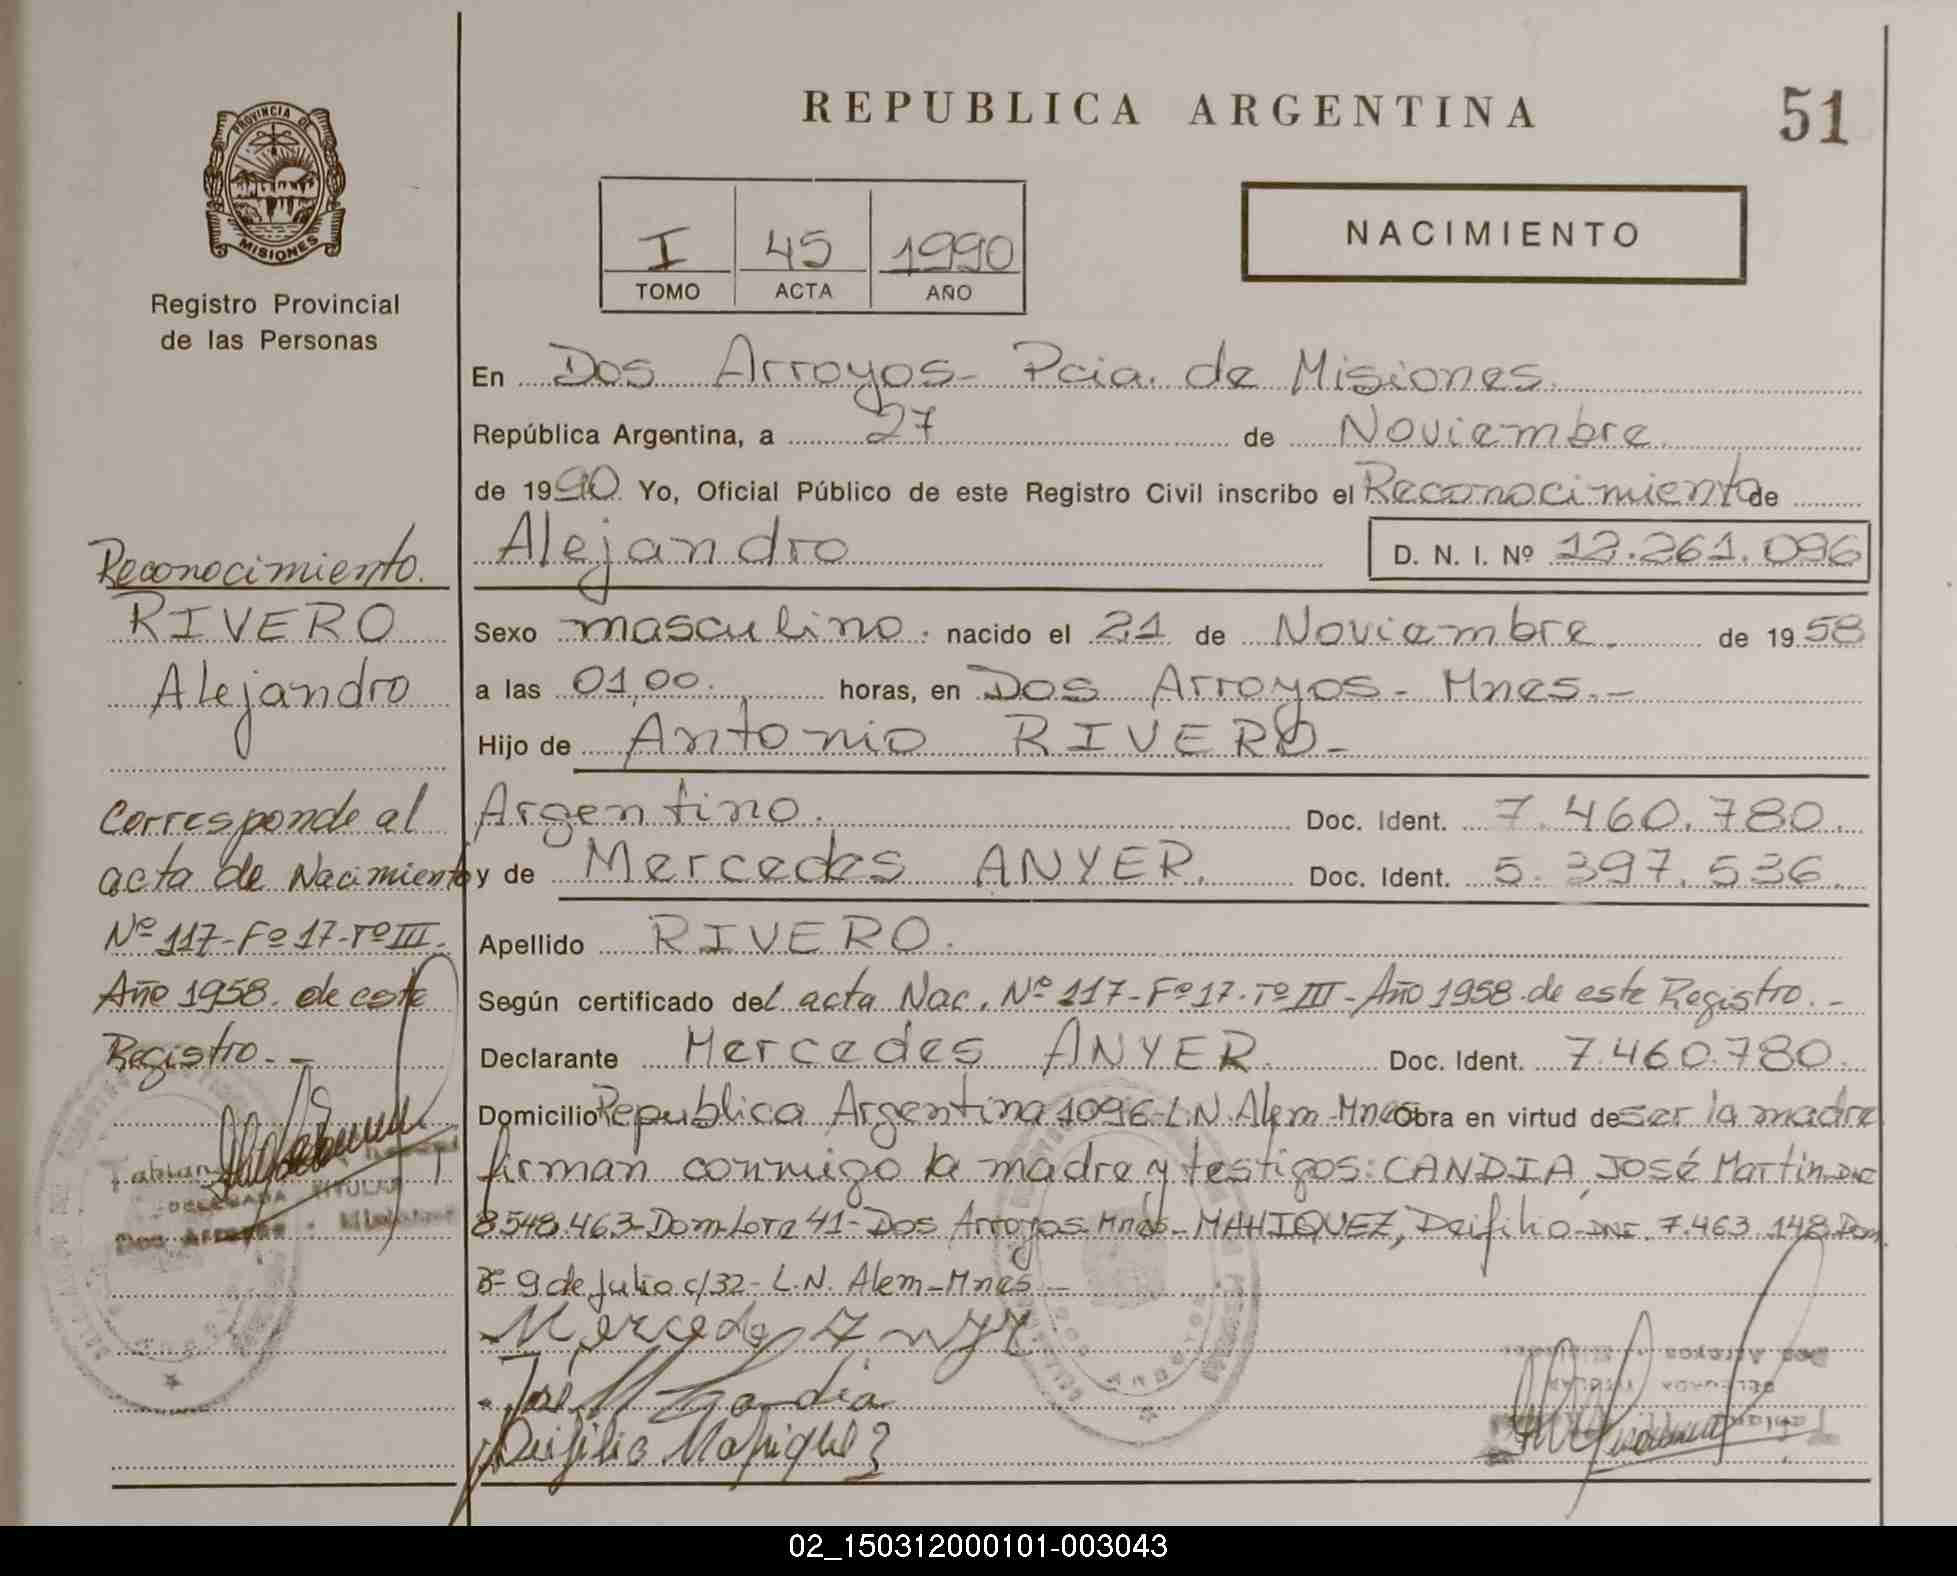 REPUBLICA ARGENTINA
51
PROVINCIA DE
MISIONES
Registro Provincial
de las Personas
I 45 1990
TOMO ACTA AÑO
NACIMIENTO
En Dos Arroyos- Pcia. de Misiones.
República Argentina, a 27 de Noviembre.
de 1990. Yo, Oficial Público de este Registro Civil inscribo el Reconocimiento de
Alejandro D. N. I. Nº 12.261.096
Sexo masculino. nacido el 21 de Noviembre. de 1958
a las 01,00. horas, en Dos Arroyos- Mnes.-
Hijo de Antonio RIVERO-
Argentino. Doc. Ident. 7.460.780.
y de Mercedes ANYER. Doc. Ident. 5.397.536.
Apellido RIVERO.
Según certificado del acta Nac. Nº 117-Fº17-Tº III-Año 1958.de este Registro.-
Declarante Mercedes ANYER. Doc. Ident. 7.460.780.
Domicilio Republica Argentina 1096-L.N.Alem-Mnes Obra en virtud de ser la madre
firman conmigo la madre y testigos: CANDIA, José Martin-DNI
8548.463-Dom-Lote 41-Dos Arroyos-Mnes-MAHIQUEZ, Deifilio-DNI. 7.463.148.Dom
9 de Julio c/32-L.N. Alem-Mnes-
José M Candia
Deifilio Mahiquez
Reconocimiento.
RIVERO
Alejandro
Corresponde al
acta de Nacimiento
Nº 117-Fº 17-Tº III.
Año 1958. de este
Registro.-
Fabian
DELEGADA TITULAR
Dos Arroyos - Misiones
02_150312000101-003043